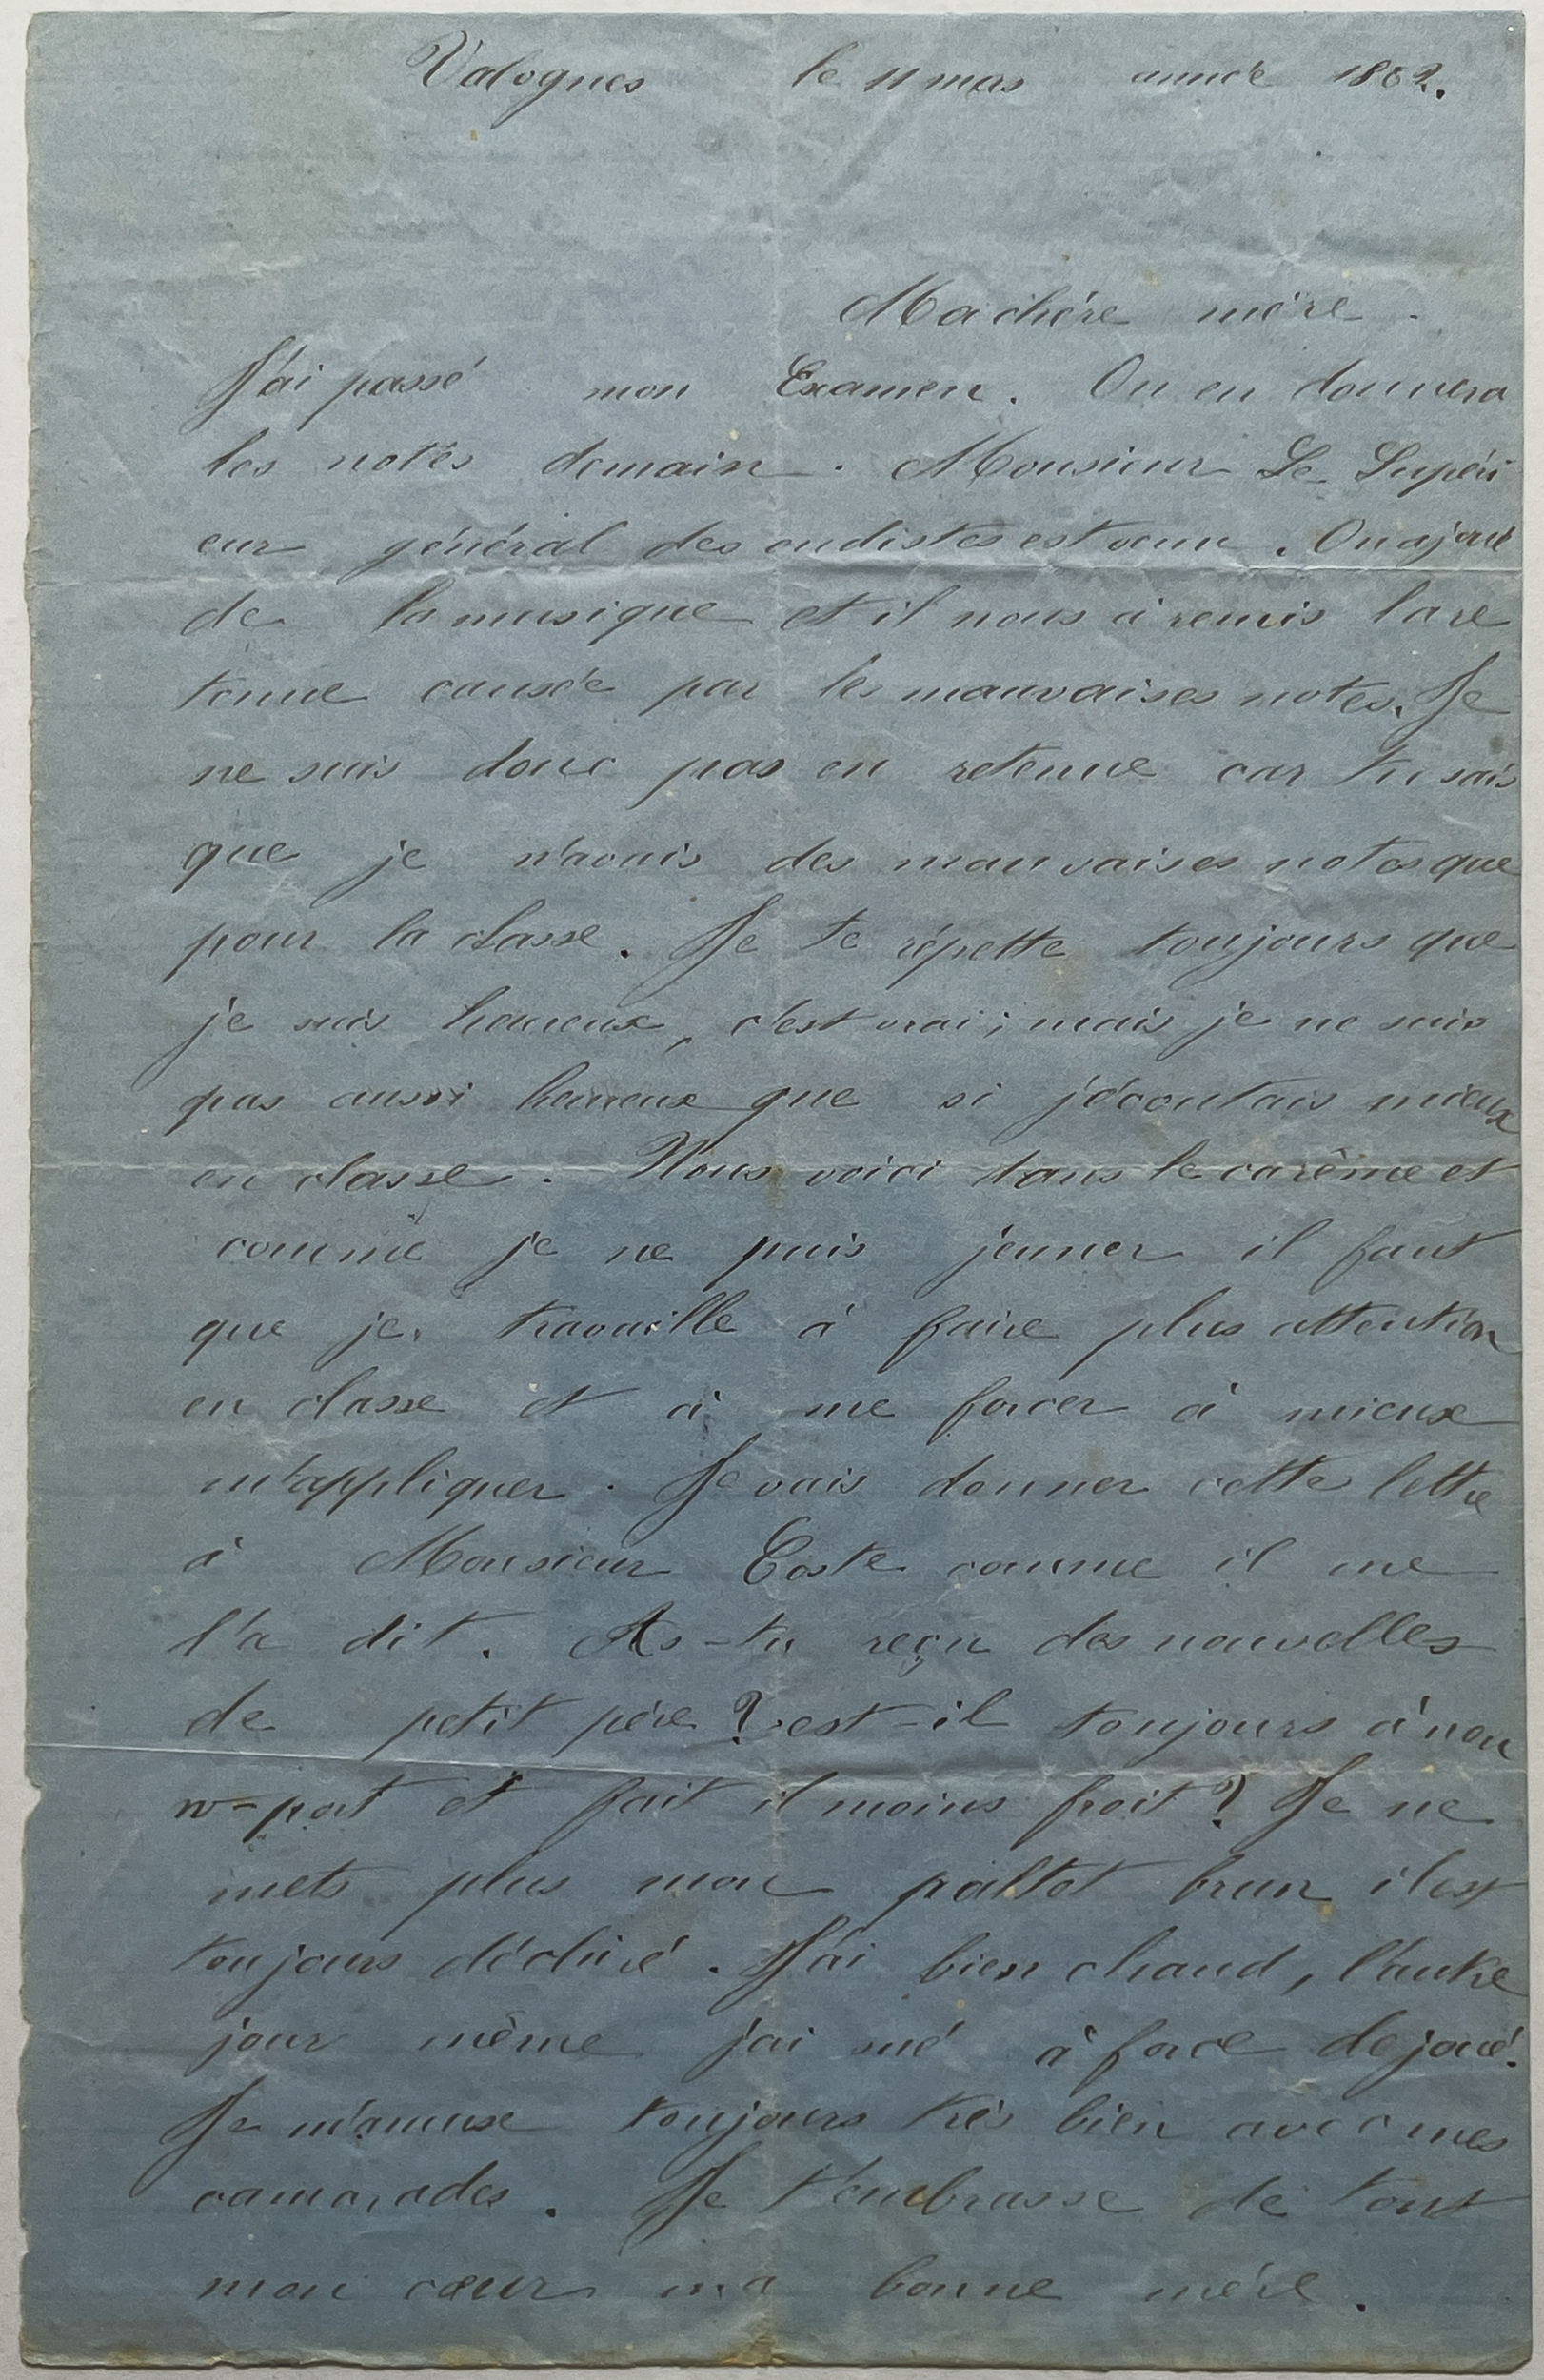 Valognes le 11 mas année 1862.
Ma chére mére.
J'ai passé mon Examen. On en donnera
les notes demain. Monsieur Le Supéri
eur général des eudistes est venu. On a joué
de la musique et il nous à remis la re
tenue causée par les mauvaises notes. Je
ne suis donc pas en retenue car tu sais
que je n'avais des mauvaises notes que
pour la classe. Je te répette toujours que
je suis heureux, c'est vrai; mais je ne suis
pas aussi heureux que si j'écoutais mieux
en classe. Nous voici dans le carême et
comme je ne puis jeuner il faut
que je travaille à faire plus attention
en classe et à me forcer à mieux
m'appliquer. Je vais donner cette lettre
à Monsieur Coste comme il me
l'a dit. As-tu reçu des nouvelles
de petit pére? est-il toujours à nou
w-port et fait il moins froit? Je ne
mets plus mon paltot brun il est
toujours déchiré. J'ai bien chaud, l'autre
jour même j'ai sué à force de joué.
Je m'amuse toujours très bien avec mes
camarades. Je t'embrasse de tout
mon cœur ma bonne mére.